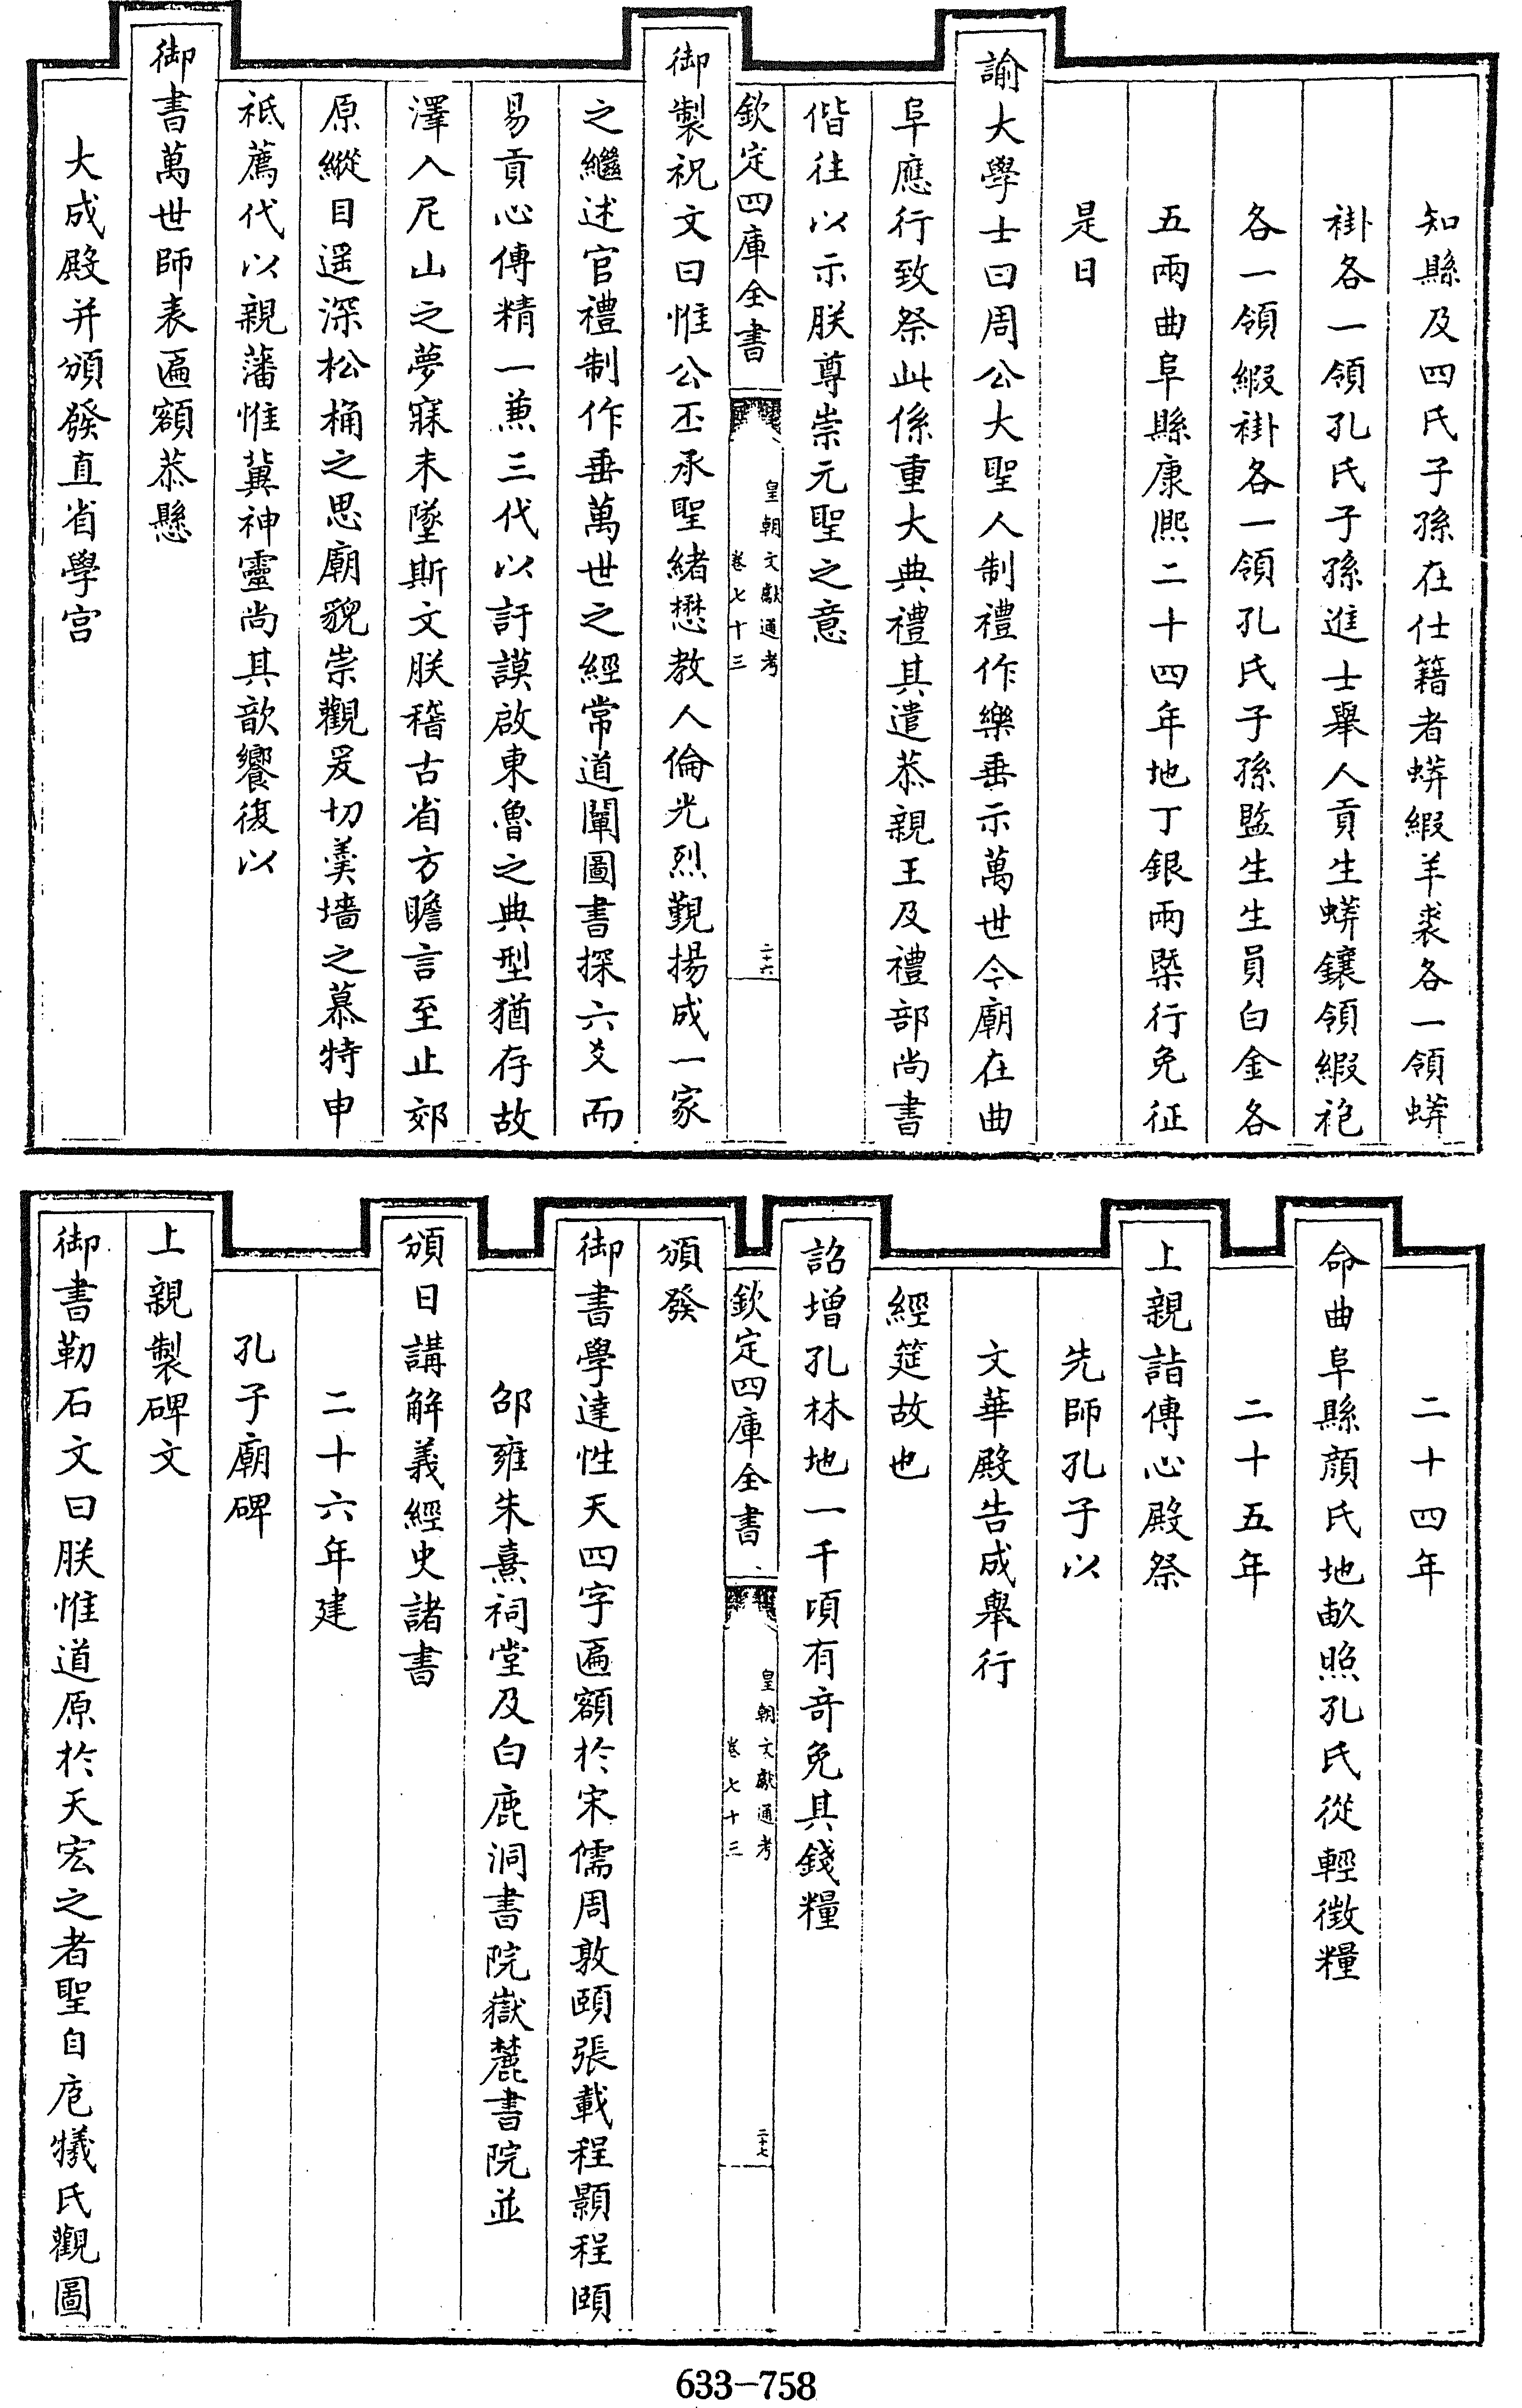 知縣及四氏子孫在仕籍者蟒緞羊裘各一領蟒
褂各一領孔氏子孫進士舉人貢生蟒鑲領緞袍
各一領緞褂各一領孔氏子孫監生生員白金各
五兩曲阜縣康熙二十四年地丁銀兩槩行免征
是日
諭大學士曰周公大聖人制禮作樂垂示萬世令廟在曲
阜應行致祭此係重大典禮其遣恭親王及禮部尚書
偕往以示朕尊崇元聖之意
欽定四庫全書
皇朝文獻通考
卷七十三
二十六
御製祝文曰惟公丕承聖緒懋教人倫光烈觀揚成一家
之繼述官禮制作垂萬世之經常道闡圖書探六爻而
易貢心傳精一兼三代以訏謨啟東魯之典型猶存故
澤入尼山之夢寐未墜斯文朕稽古省方瞻言至止郊
原縱目遥深松桷之思廟貌崇觀爰切羹墻之慕特申
祗薦代以親藩惟冀神靈尚其歆饗復以
御書萬世師表匾額恭懸
大成殿并頒發直省學宫
二十四年
命曲阜縣顔氏地畝照孔氏從輕徵糧
二十五年
上親詣傳心殿祭
先師孔子以
文華殿告成舉行
經筵故也
詔增孔林地一千頃有竒免其錢糧
欽定四庫全書
皇朝文獻通考
卷七十三
二十七
頒發
御書學達性天四字匾額於宋儒周敦頤張載程顥程頤
邵雍朱熹祠堂及白鹿洞書院嶽麓書院並
頒日講解義經史諸書
二十六年建
孔子廟碑
上親製碑文
御書勒石文曰朕惟道原於天宏之者聖自庖犧氏觀圖
633-758